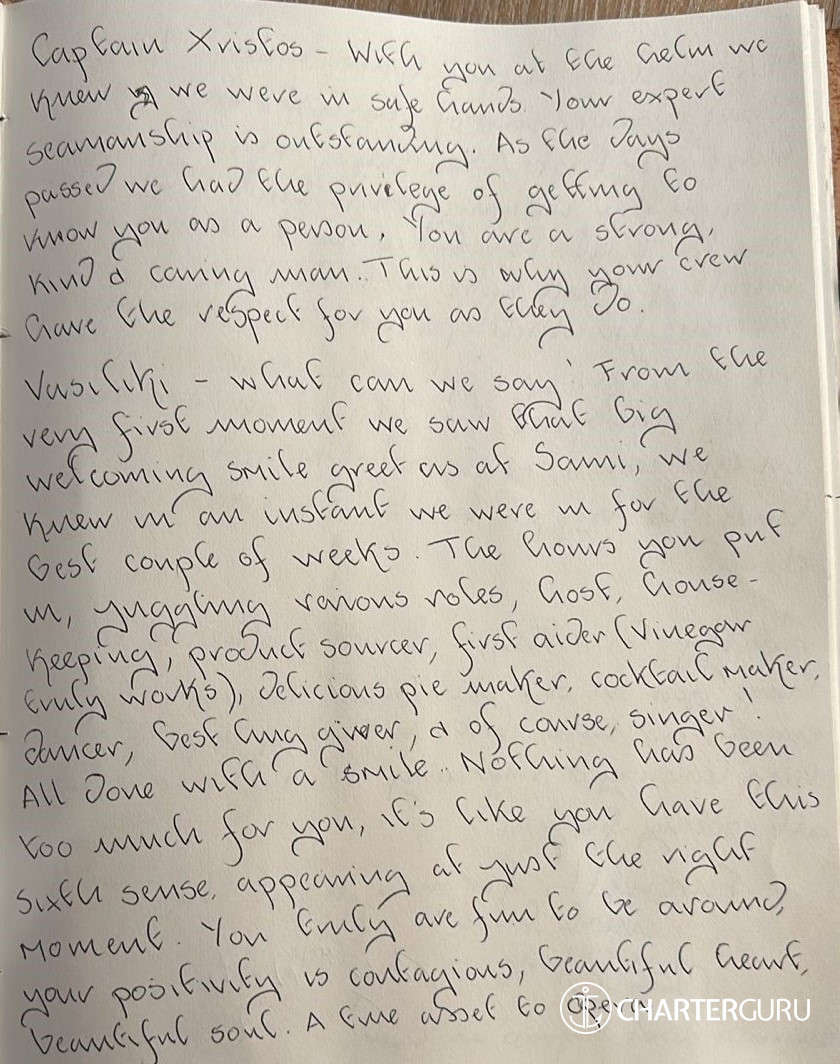 Captain Xristos - With you at the helm we
knew we were in safe hands. Your expert
seamanship is outstanding. As the days
passed we had the privelege of getting to
know you as a person, You are a strong,
kind & caring man. This is why your crew
have the respect for you as they do.
Vasiliki - what can we say! From the
very first moment we saw that big
welcoming smile greet us at Sami, we
knew in an instant we were in for the
best couple of weeks. The hours you put
in, juggling various roles, host, house-
keeping, product sourcer, first aider (vinegar
truly works), delicious pie maker, cocktail maker,
dancer, best hug giver, & of course, singer!
All done with a smile. Nothing has been
too much for you, it's like you have this
sixth sense, appearing at just the right
moment. You truly are fun to be around,
your positivity is contagious, beautiful heart,
beautiful soul. A true asset to
CHARTERGURU